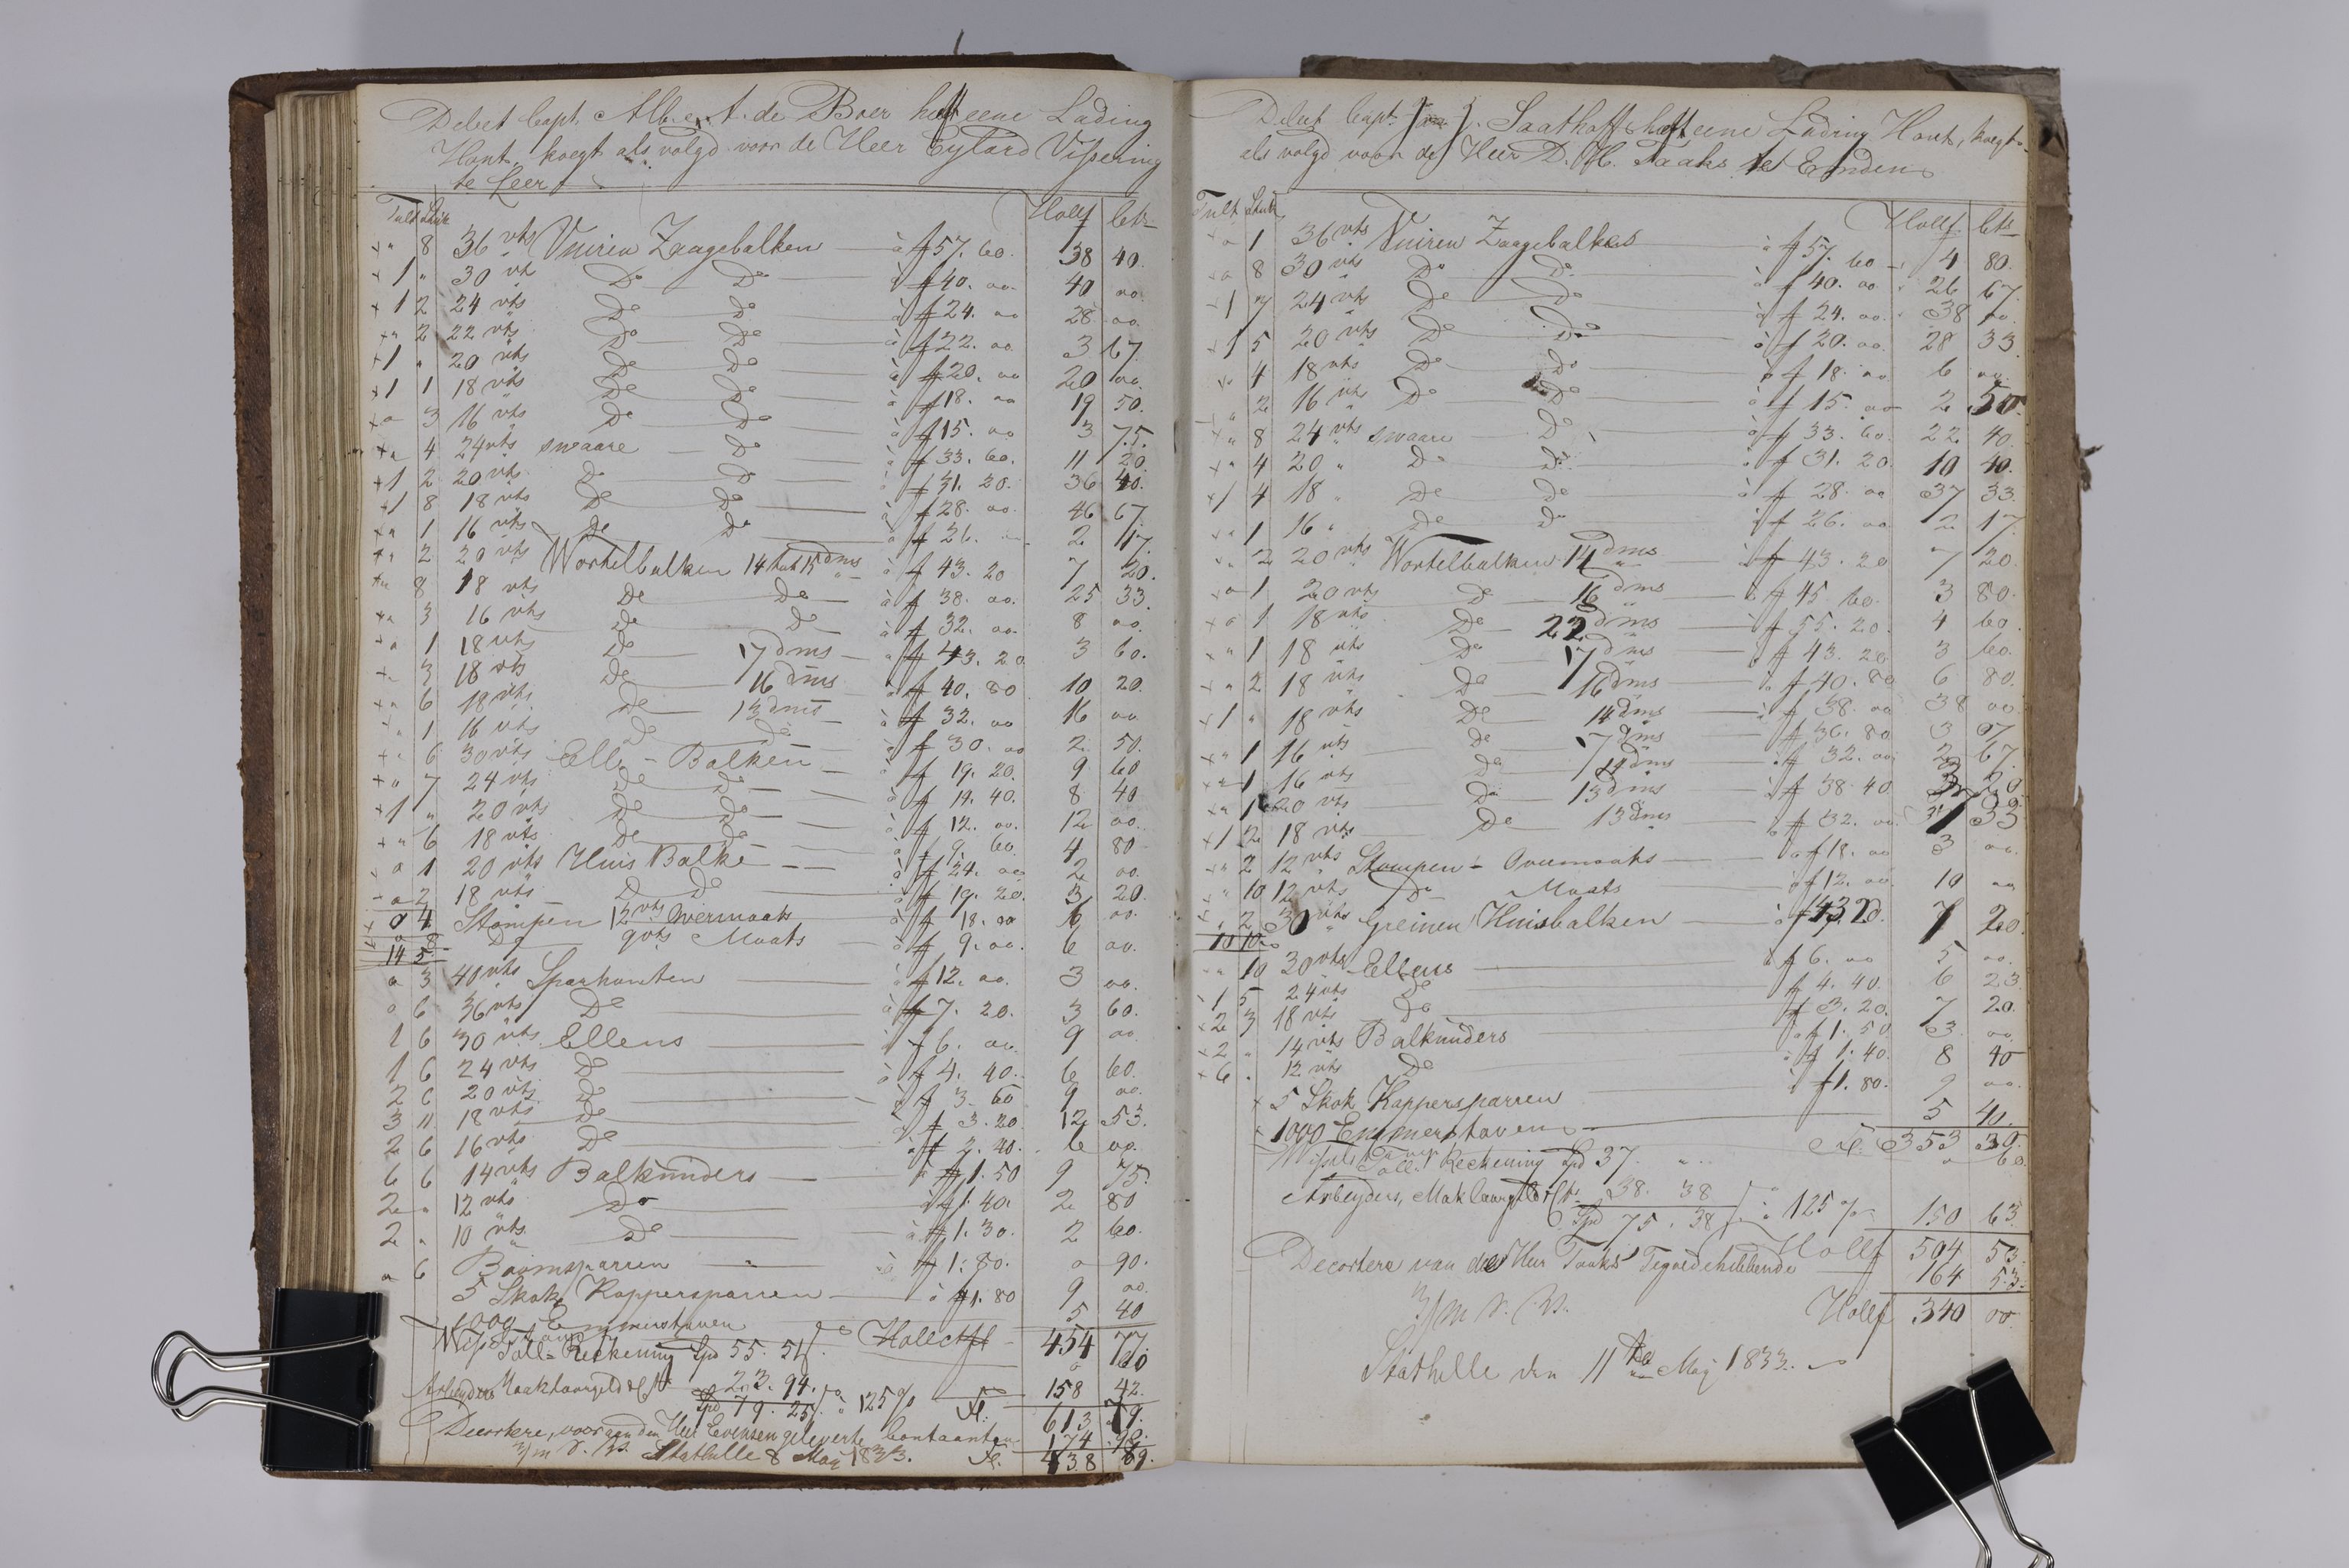 Debet Capt. Alb. A. de Boer heeft eene Lading
Hont, koegt als volgd voor de Heer Eylard Vissering
te Leer
Tult Stuk Hollf Cts
" 8 36 vts Vuiren Zaagebalken à f 57. 60. 38 40.
1 " 30 vt Do Do à f 40. 00. 40 00.
1 2 24 vts Do Do à f 24. 00 28 00.
" 2 22 vts Do Do à f 22. 00 3 67.
1 " 20 vts Do Do à f 20. 00 20 00.
1 1 18 vts Do Do à f 18. 00 19 50.
" 3 16 vts Do Do à f 15. 00 3 75.
" 4 24 vts swaare Do à f 33. 60. 11 20.
1 2 20 vts Do Do à f 31. 20. 36 40.
1 8 18 vts Do Do à f 28. 00. 46 67.
" 1 16 vts Do Do à f 26. 2 17.
" 2 20 vts Wortelbalken 14 tut 15 dms à f 43. 20 7 20.
" 8 18 vts Do Do à f 38. 00. 25 33.
" 3 16 vts Do Do à f 32. 00. 8 00.
" 1 18 vts Do 17 dms à f 43. 20 3 60.
" 3 18 vts Do 16 dms à f 40. 80 10 20.
" 6 18 vts Do 13 dms à f 32. 00 16 00
" 1 16 vts Do Do à f 30. 00 2 50.
" 6 30 vts Elle-Balken à f 19. 20. 9 60
" 7 24 vts Do Do à f 14. 40. 8 40
1 " 20 vts Do Do à f 12. 00. 12 00.
" 6 18 vts Do Do à f 9. 60. 4 80
" 1 20 vts Huis Balke à f 24. 00 2 00.
" 2 18 vts Do Do à f 19. 20. 3 20.
0 4 Stompen 12 vts Overmaats à f 18. 00 6 00.
" 8 Do 9 vts Maats à f 9. 00. 6 00.
14 5
" 3 40 vts Sparhonten à f 12. 00. 3 00.
" 6 36 vts Do à f 7. 20. 3 60.
1 6 30 vts Ellens à f 6. 00. 9 00
1 6 24 vts Do à f 4. 40. 6 60.
2 6 20 vts Do à f 3. 60 9 00.
3 11 18 vts Do à f 3. 20. 12 53.
2 6 16 vts Do à f 2. 40. 6 00.
6 6 14 vts Balkunders à f 1. 50 9 75.
2 " 12 vts Do à f 1. 40. 2 80
2 " 10 vts Do à f 1. 30. 2 60.
" 6 Boomsparren à f 1. 80. 0 90.
5 Skok Kappersparren à f 1. 80 9 00.
1000 Emmerstaven 5 40
Hollct f 454 77.
Toll-Reckening Spd 55. 51 60
Arbeyders Maaklaargeld &c. 23. 94.
Spd 79. 25 à 125 % Fl. 158 42.
613 79.
Decortere, voor aan den Heer Evensen geleverte Contanten 174
3/m d. d. Stathelle 8 May 1833. Fl. 438 89.
Debet Capt. J. Saathoff heeft eene Lading Hont, koegt
als volgd voor de Heer D. H. Taaks te Emden
Tult Stuk Hollf. Cts
" 1 36 vts Vuiren Zaagebalkes à f 57. 60 4 80.
" 8 30 vts Do Do à f 40. 00 26 67.
1 7 24 vts Do Do à f 24. 00. 38 00
1 5 20 vts Do Do à f 20. 00. 28 33.
" 4 18 vts Do Do à f 18. 00 6 00.
" 2 16 vts Do Do à f 15. 00 2 50.
" 8 24 vts swaare Do à f 33. 60. 22 40.
" 4 20 " Do Do à f 31. 20. 10 40.
1 4 18 " Do Do à f 28. 00 37 33.
" 1 16 " Do Do à f 26. 00 2 17.
" 2 20 vts Wortelbalken 14 dms à f 43. 20 7 20.
" 1 20 vts Do 16 dms à f 45. 60. 3 80.
" 1 18 vts Do 22 dms à f 55. 20. 4 60.
" 1 18 vts Do 17 dms à f 43. 20 3 60.
" 2 18 vts Do 16 dms à f 40. 80 6 80.
1 " 18 vts Do 14 dms à f 38. 00 38 00
" 1 16 vts Do 17 dms à f 36. 80 3 07
" 1 16 vts Do 14 dms à f 32. 00 2 67.
" 1 20 vts Do 13 dms à f 38. 40 3 20
1 2 18 vts Do 13 dms à f 32. 00. 37 33
" 2 12 vts Stompen Overmaats à f 18. 00 3 00.
" 10 12 vts Do Maats à f 12. 00 10 00
" 2 30 vts Greinen Huisbalken à f 43. 20. 7 20.
10 10
" 10 30 vts Ellens à f 6. 00 5 00.
1 5 24 vts Do f 4. 40. 6 23.
2 3 18 vts Do f 3. 20. 7 20.
2 " 14 vts Balkunders à f 1. 50. 3 00.
6 " 12 vts Do à f 1. 40. 8 40
5 Skok Kappersparren à f 1. 80. 9 00.
1000 Emmerstaven 5 40.
Fl. 353 30.
Toll Reckening Spd 37. " 60
Arbeyders, Maklaargeld &c. 38. 38
Spd 75. 38 à 125 % 150 63.
Hollf 504 53.
Decortere van de Heer Taaks Tegoedehebbende 164 53.
3/m d. d. Hollf 340 00
Stathelle den 11te May 1833.